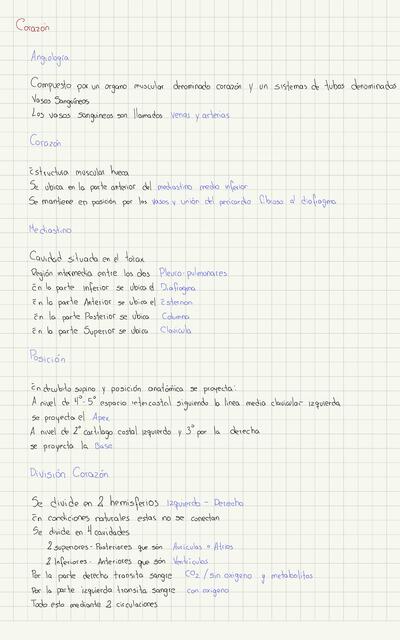 Corazón
Angiología
Compuesto por un organo muscular denominado corazón y un sistemas de tubos denominados
Vasos Sanguíneos
Los vasos sanguineos son llamados venas y arterias
Corazón
Estructura muscular hueca
Se ubica en la parte anterior del mediastino medio inferior
Se mantiene en posición por los vasos y unión del pericardio fibroso al diafragma
Mediastino
Cavidad situada en el torax
Región intermedia entre los dos Pleuro-pulmonares
En la parte Inferior se ubica el Diafragma
En la parte Anterior se ubica el Esternon
En la parte Posterior se ubica Columna
En la parte Superior se ubica Clavicula
Posición
En decubito supino y posición anatómica se proyecta:
A nivel de 4°-5° espacio intercostal siguiendo la linea media clavicular izquierda
se proyecta el Apex
A nivel de 2° cartilago costal izquierdo y 3° por la derecha
se proyecta la Base
División Corazón
Se divide en 2 hemisferios Izquierdo - Derecho
En condiciones naturales estas no se conectan
Se divide en 4 cavidades
2 superiores-Posteriores que son Auriculas o Atrios
2 Inferiores- Anteriores que son Ventriculos
Por la parte derecha transita sangre CO2 / sin oxigeno y metabolitos
Por la parte izquierda transita sangre con oxigeno
Todo esto mediante 2 circulaciones